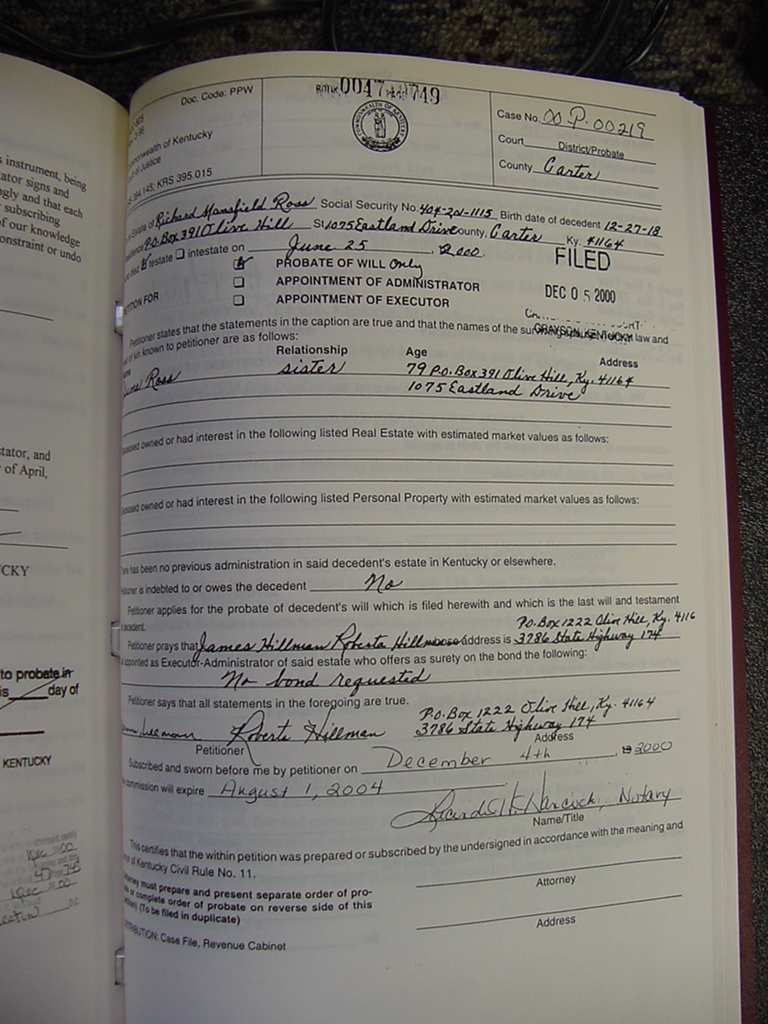 Doc. Code: PPW
0047 749
Case No. 00-P-00219
Commonwealth of Kentucky
Court of Justice
Court District/Probate
County Carter
394.145; KRS 395.015
Estate of Richard Mansfield Ross Social Security No. 404-20-1115 Birth date of decedent 12-27-18
P.O. Box 391 Olive Hill St. 1075 Eastland Drive County, Carter Ky. 41164
died testate ☐ intestate on June 25, 2000.
FILED
DEC 05 2000
GRAYSON, KENTUCKY
PETITION FOR
PROBATE OF WILL only
☐ APPOINTMENT OF ADMINISTRATOR
☐ APPOINTMENT OF EXECUTOR
Petitioner states that the statements in the caption are true and that the names of the surviving law and
kin known to petitioner are as follows:
Relationship Age Address
Ross sister 79 P.O. Box 391 Olive Hill, Ky. 41164
1075 Eastland Drive
owned or had interest in the following listed Real Estate with estimated market values as follows:
owned or had interest in the following listed Personal Property with estimated market values as follows:
has been no previous administration in said decedent's estate in Kentucky or elsewhere.
is indebted to or owes the decedent No
Petitioner applies for the probate of decedent's will which is filed herewith and which is the last will and testament
decedent.
P.O. Box 1222 Olive Hill, Ky. 4116
Petitioner prays that James Hillman Roberta Hillman whose address is 3786 State Highway 174
appointed as Executor-Administrator of said estate who offers as surety on the bond the following:
No bond requested
Petitioner says that all statements in the foregoing are true.
P.O. Box 1222 Olive Hill, Ky. 41164
Hillman Roberta Hillman 3786 State Highway 174
Petitioner Address
Subscribed and sworn before me by petitioner on December 4th, 2000
commission will expire August 1, 2004
Hancock, Notary
Name/Title
This certifies that the within petition was prepared or subscribed by the undersigned in accordance with the meaning and
of Kentucky Civil Rule No. 11.
Attorney
must prepare and present separate order of pro-
or complete order of probate on reverse side of this
(To be filed in duplicate)
Address
DISTRIBUTION: Case File, Revenue Cabinet
s instrument, being
ator signs and
ngly and that each
subscribing
of our knowledge
onstraint or undo
stator, and
of April,
CKY
to probate in
is day of
KENTUCKY